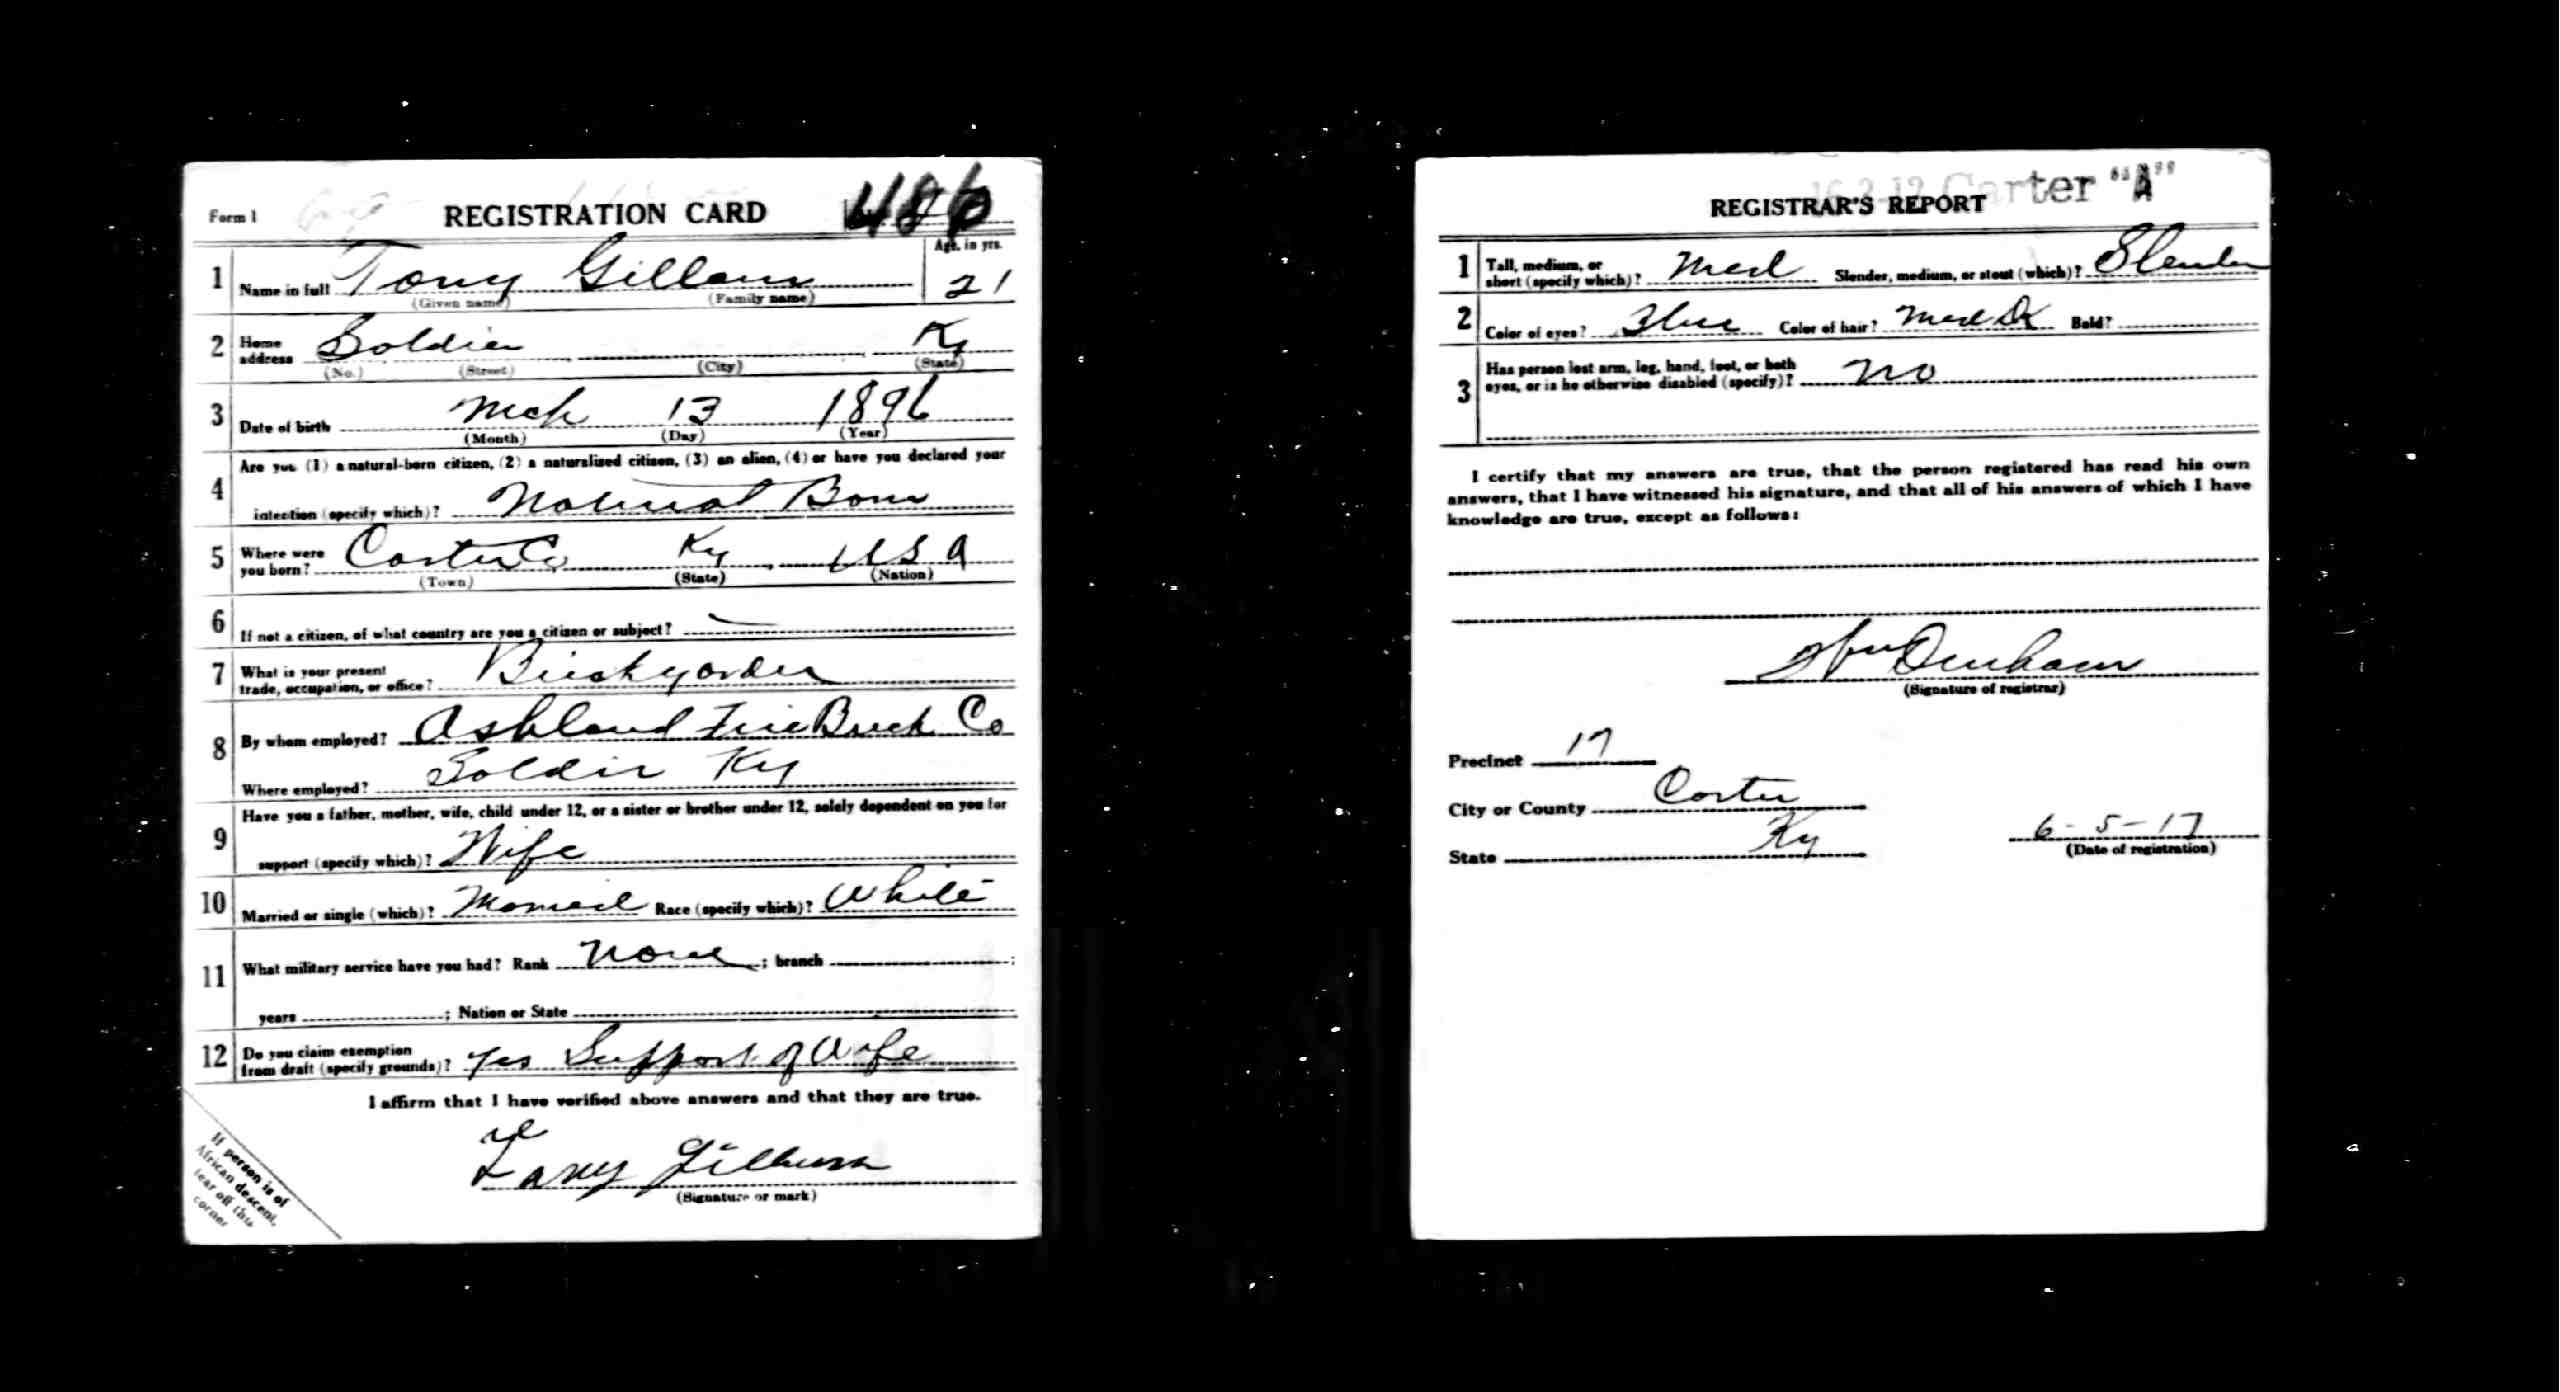 Form 1 REGISTRATION CARD 486
1 Name in full Tony Gillam Age, in yrs. 21
(Given name) (Family name)
2 Home address Soldier Ky
(No.) (Street) (City) (State)
3 Date of birth Mch 13 1896
(Month) (Day) (Year)
Are you (1) a natural-born citizen, (2) a naturalized citizen, (3) an alien, (4) or have you declared your
4 intention (specify which)? Natural Born
5 Where were you born? Carter Co Ky USA
(Town) (State) (Nation)
6 If not a citizen, of what country are you a citizen or subject?
7 What is your present trade, occupation, or office? Brickyarder
8 By whom employed? Ashland Fire Brick Co
Where employed? Soldir Ky
Have you a father, mother, wife, child under 12, or a sister or brother under 12, solely dependent on you for
9 support (specify which)? Wife
10 Married or single (which)? Married Race (specify which)? White
11 What military service have you had? Rank None ; branch ;
years ; Nation or State
12 Do you claim exemption from draft (specify grounds)? Yes Support of Wife
I affirm that I have verified above answers and that they are true.
Tany Gillum
(Signature or mark)
If person is of
African descent,
tear off this
corner
16-3-12 Carter "A"
REGISTRAR'S REPORT
1 Tall, medium, or short (specify which)? Med Slender, medium, or stout (which)? Slender
2 Color of eyes? Blue Color of hair? Med Dk Bald?
3 Has person lost arm, leg, hand, foot, or both eyes, or is he otherwise disabled (specify)? No
I certify that my answers are true, that the person registered has read his own
answers, that I have witnessed his signature, and that all of his answers of which I have
knowledge are true, except as follows:
Wm Denham
(Signature of registrar)
Precinct 17
City or County Carter
State Ky 6-5-17
(Date of registration)